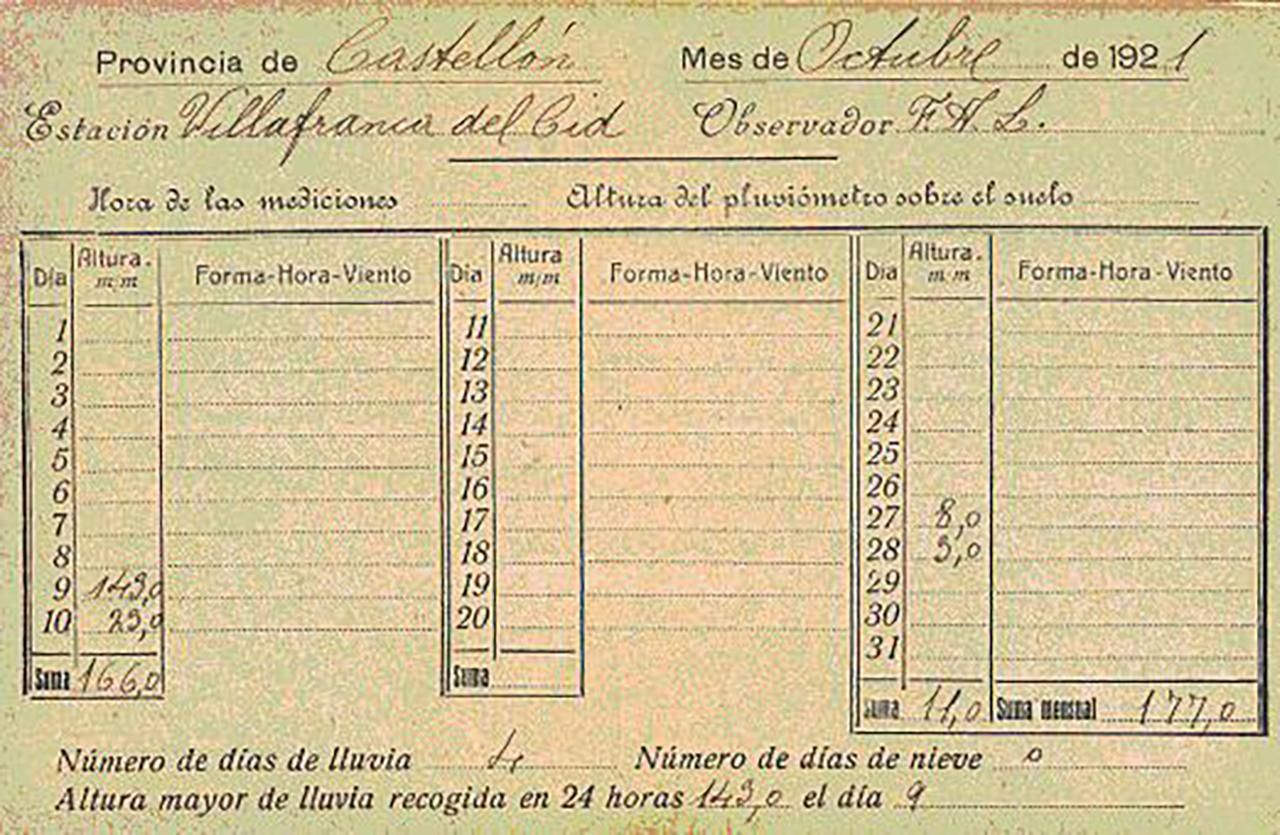 Provincia de Castellón Mes de Octubre de 1921
Estación Villafranca del Cid Observador F. A. L.
Hora de las mediciones Altura del pluviómetro sobre el suelo
Día Altura. m/m Forma-Hora-Viento Día Altura m/m Forma-Hora-Viento Día Altura. m/m Forma-Hora-Viento
1 11 21
2 12 22
3 13 23
4 14 24
5 15 25
6 16 26
7 17 27 8,0
8 18 28 3,0
9 143,0 19 29
10 23,0 20 30
31
Suma 166,0 Suma Suma 11,0 Suma mensual 177,0
Número de días de lluvia 4 Número de días de nieve 0
Altura mayor de lluvia recogida en 24 horas 143,0 el día 9